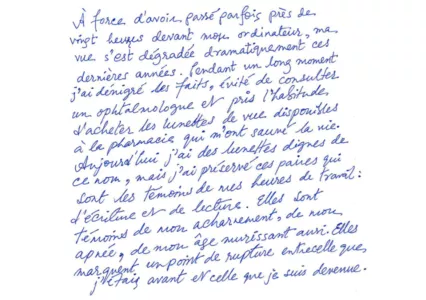 À force d'avoir passé parfois près de
vingt heures devant mon ordinateur, ma
vue s'est dégradée dramatiquement ces
dernières années. Pendant un long moment
j'ai dénigré les faits, évité de consulter
un ophtalmologue et pris l'habitude
d'acheter les lunettes de vue disponibles
à la pharmacie qui m'ont sauvé la vie.
Aujourd'hui j'ai des lunettes dignes de
ce nom, mais j'ai préservé ces paires qui
sont les témoins de mes heures de travail :
d'écriture et de lecture. Elles sont
témoins de mon acharnement, de mon
apnée, de mon âge murissant aussi. Elles
marquent un point de rupture entre celle que
j'étais avant et celle que je suis devenue.